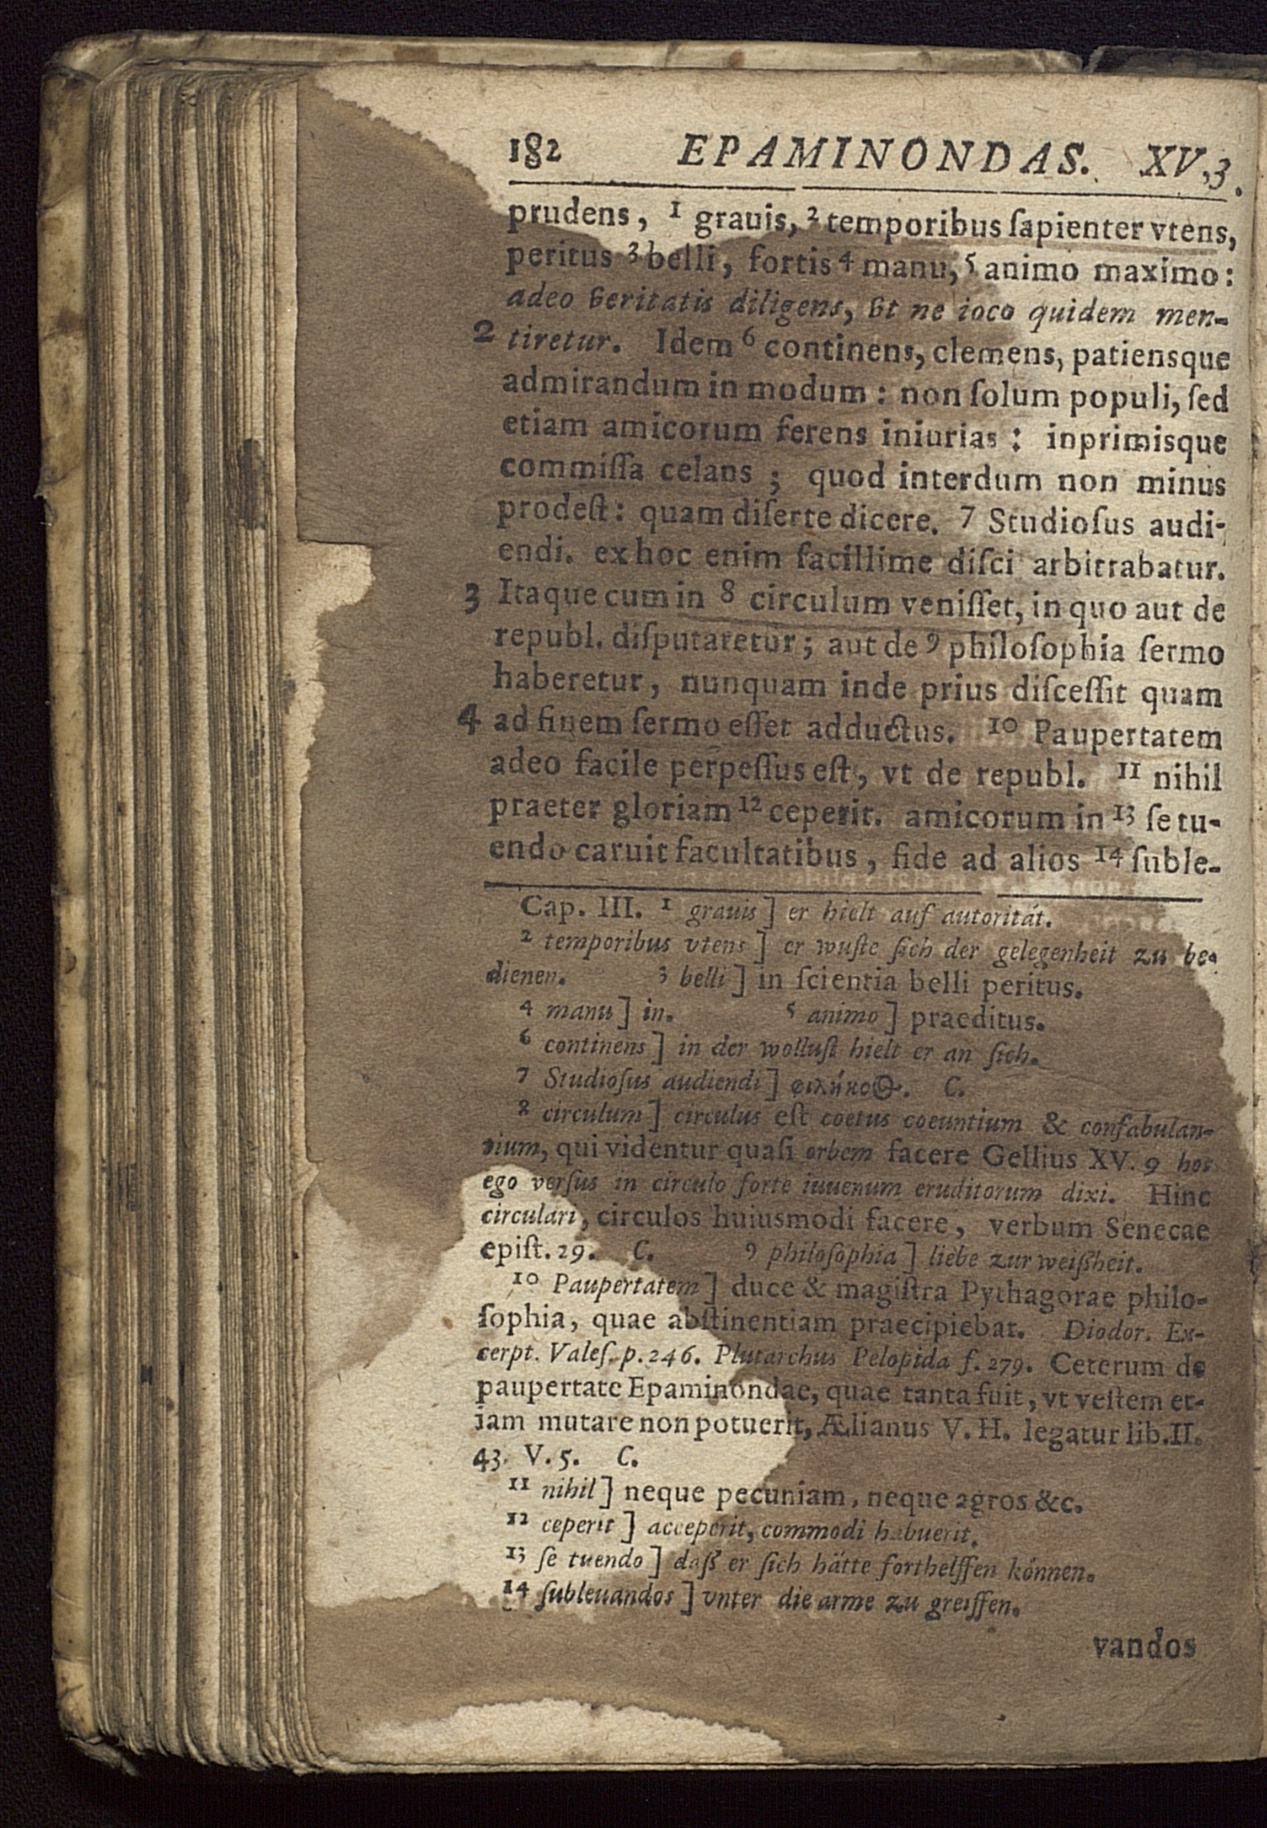 182 EPAMINONDAS. XV,3.
prudens, 1 grauis, 2 temporibus ſapienter vtens,
peritus 3 belli, fortis 4 manu, 5 animo maximo:
adeo veritatis diligens, vt ne ioco quidem men-
2 tiretur. Idem 6 continens, clemens, patiensque
admirandum in modum: non ſolum populi, ſed
etiam amicorum ferens iniurias: inprimisque
commiſſa celans; quod interdum non minus
prodeſt: quam diſerte dicere. 7 Studioſus audi-
endi. ex hoc enim facillime diſci arbitrabatur.
3 Itaque cum in 8 circulum veniſſet, in quo aut de
republ. diſputaretur; aut de 9 philoſophia ſermo
haberetur, nunquam inde prius diſceſſit quam
4 ad finem ſermo eſſet adductus. 10 Paupertatem
adeo facile perpeſſus eſt, vt de republ. 11 nihil
praeter gloriam 12 ceperit. amicorum in 13 ſe tu-
endo caruit facultatibus, fide ad alios 14 ſuble-
Cap. III. 1 grauis] er hielt auf autorität.
2 temporibus vtens] er wuſte ſich der gelegenheit zu be-
dienen. 3 belli] in ſcientia belli peritus.
4 manu] in. 5 animo] praeditus.
6 continens] in der wolluſt hielt er an ſich.
7 Studioſus audiendi] C.
8 circulum] circulus eſt coetus coeuntium & confabulan-
tium, qui videntur quaſi orbem facere Gellius XV. 9 hos
ego verſus in circulo forte iuuenum eruditorum dixi. Hinc
circulari, circulos huiusmodi facere, verbum Senecae
epiſt. 29. C. 9 philoſophia] liebe zur weißheit.
10 Paupertatem] duce & magiſtra Pythagorae philo-
ſophia, quae abſtinentiam praecipiebat. Diodor. Ex-
cerpt. Valeſ. p. 246. Plutarchus Pelopida f. 279. Ceterum de
paupertate Epaminondae, quae tanta fuit, vt veſtem et-
iam mutare non potuerit, Ælianus V. H. legatur lib. II.
43. V. 5. C.
11 nihil] neque pecuniam, neque agros &c.
12 ceperit] acceperit, commodi habuerit.
13 ſe tuendo] daß er ſich hätte forthelffen können.
14 ſubleuandos] vnter die arme zu greiffen.
vandos